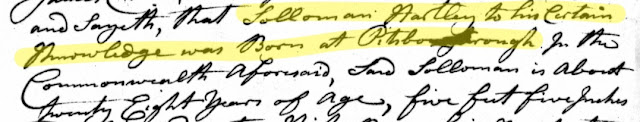 and Sayeth, that Solloman Hartley to his Certain
Knowledge was Born at Pitsborough In the
Commonwealth Aforesaid, Said Solloman is About
twenty Eight Years of Age, five feet five Inches